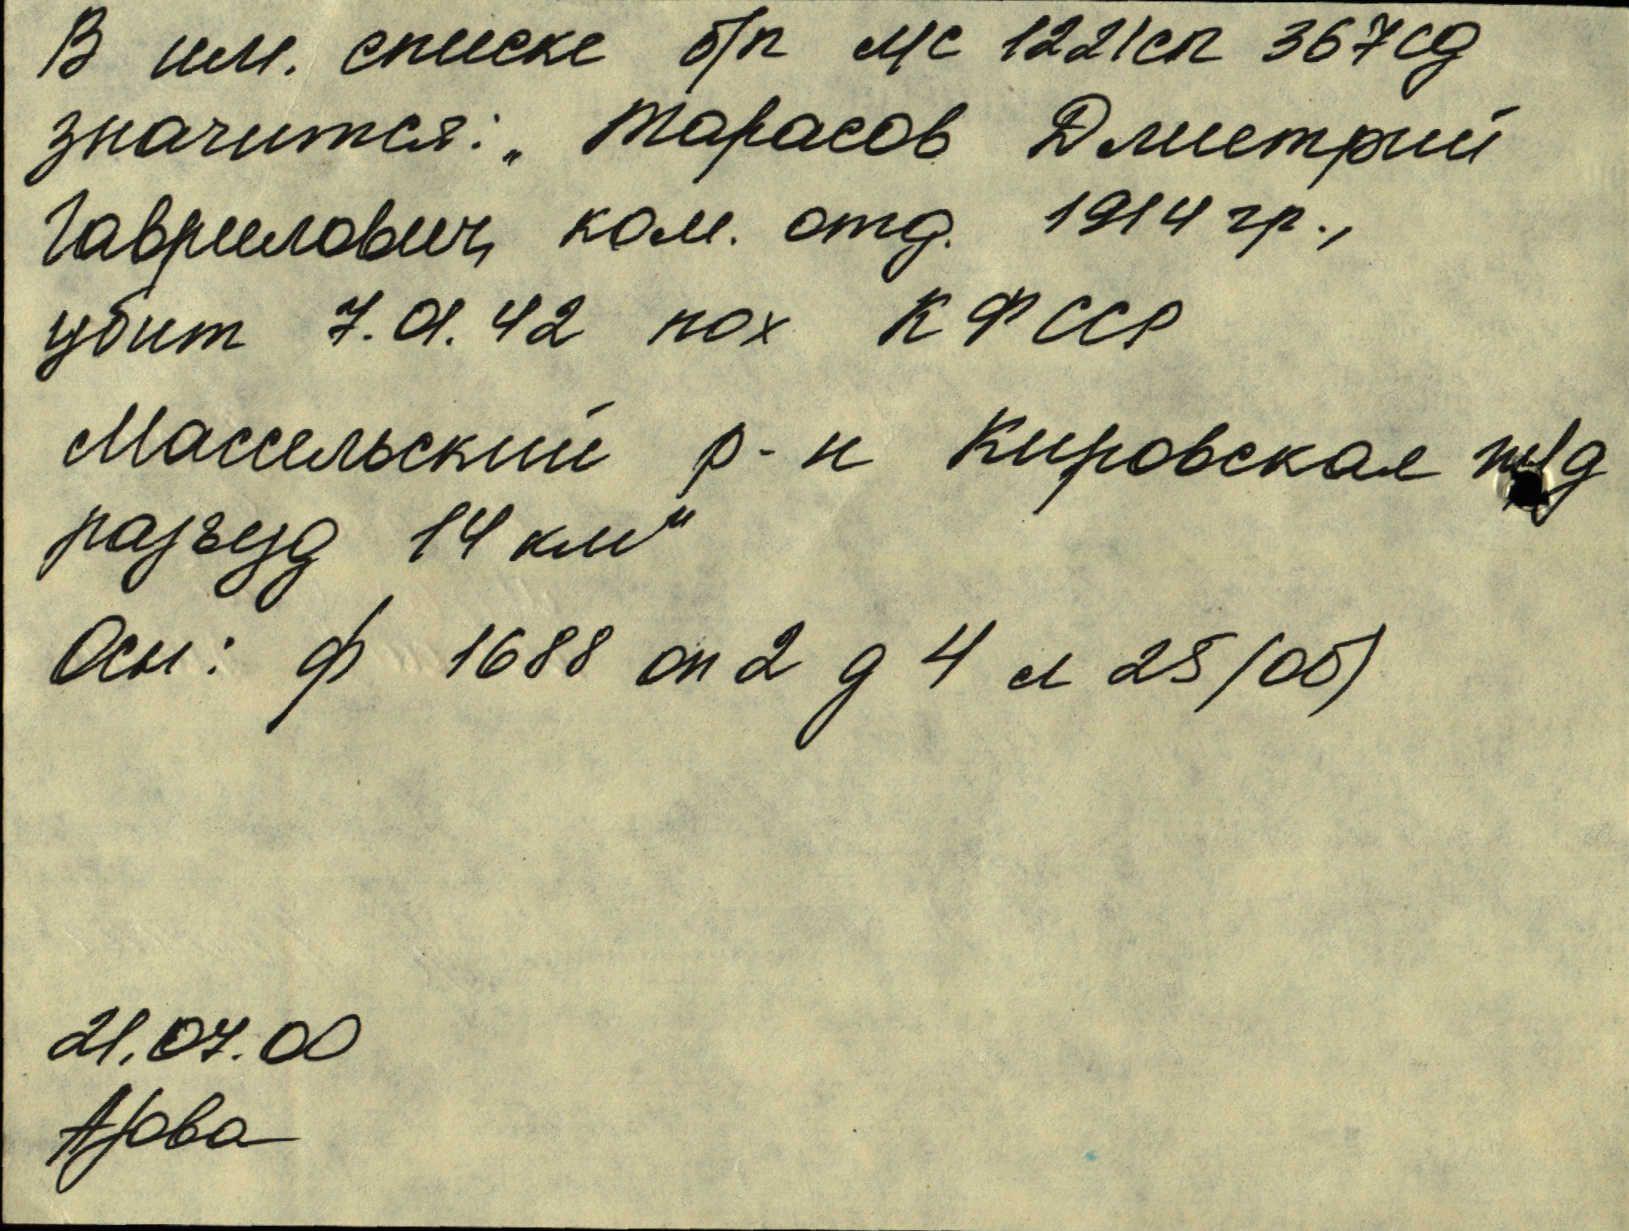 В им. списке б/п м/с 1221сп 367сд
значится: „Тарасов Дмитрий
Гаврилович, ком. отд. 1914 гр.,
убит 7.01.42 пох КФССР
Массельский р-н Кировская ж/д
разъезд 14 км"
Осн: ф 1688 оп 2 д 4 л 25 (об)
21.07.00